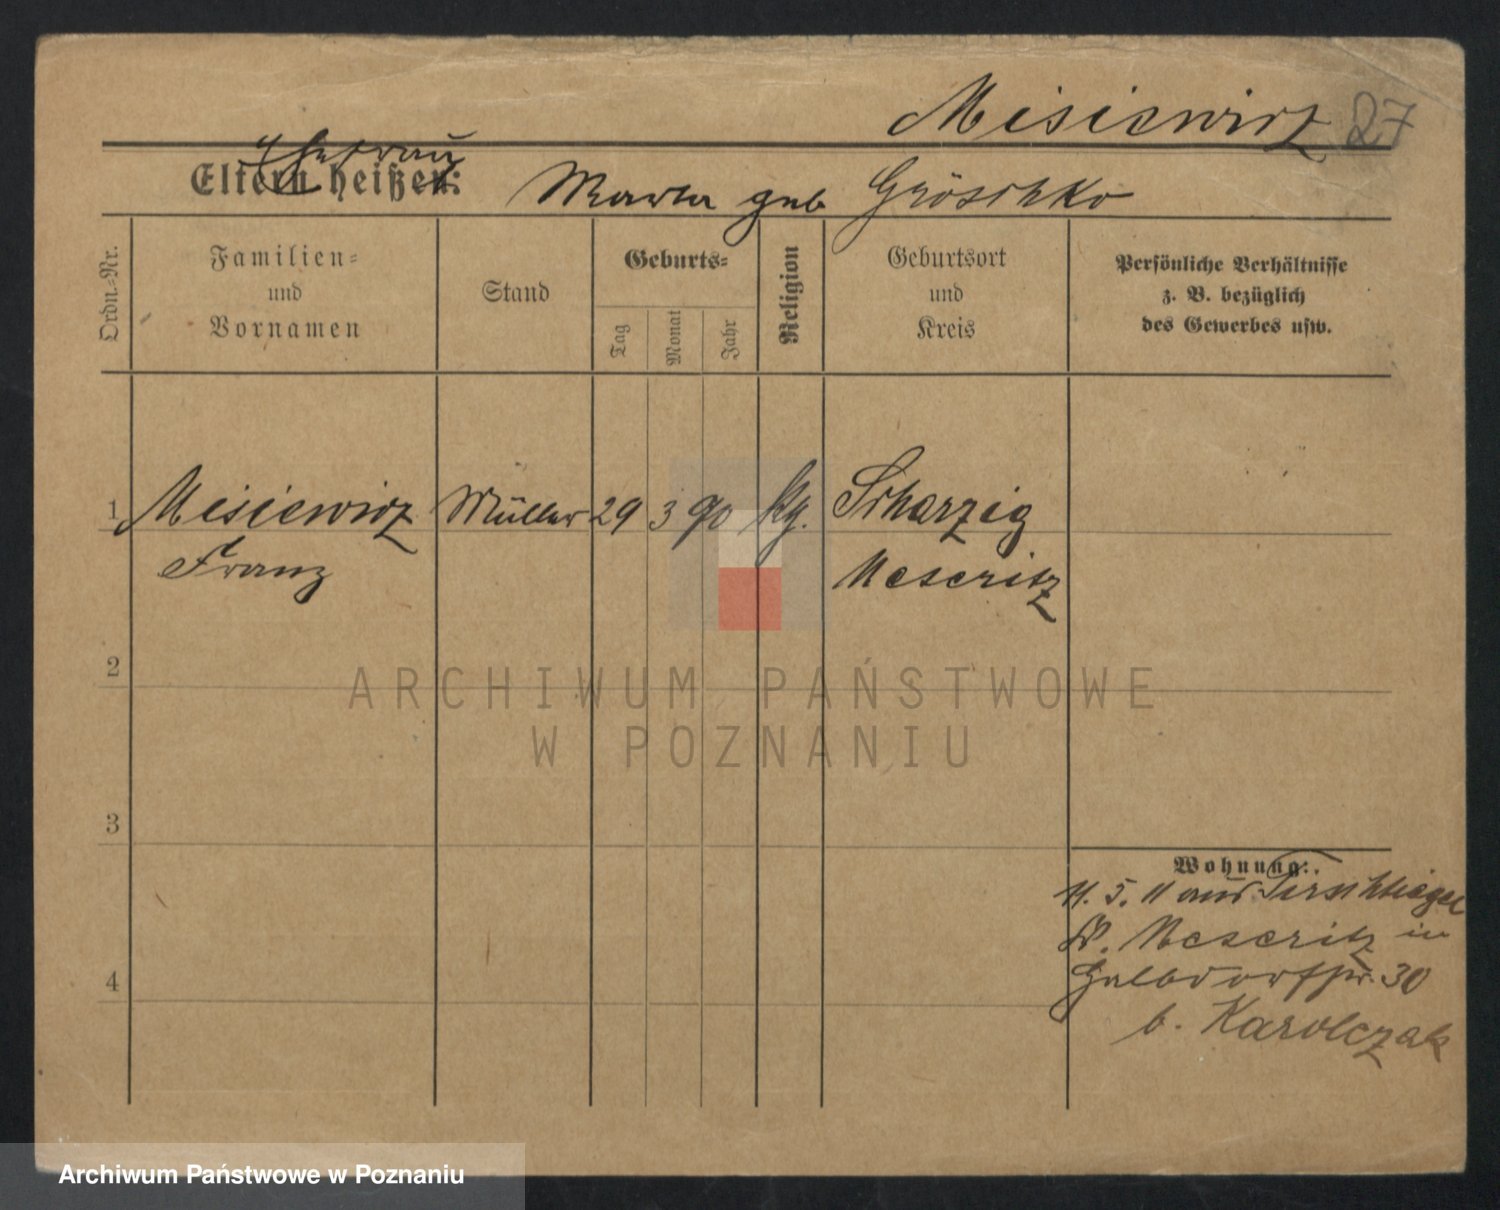 Misiewicz 27
Ehefrau
Eltern heißen: Marta geb Gröschke
Ordn.-Nr.
Familien-
und
Vornamen
Stand
Geburts-
Tag
Monat
Jahr
Religion
Geburtsort
und
Kreis
Persönliche Verhältnisse
z. B. bezüglich
des Gewerbes usw.
1 Misiewicz Müller 29 3 90 kg. Scharzig
Franz Meseritz
ARCHIWUM PAŃSTWOWE
W POZNANIU
2
3
4
Wohnung:
11. 5. 11 aus Tirschtiegel
Kr. Meseritz in
30
b. Karolczak
Archiwum Państwowe w Poznaniu